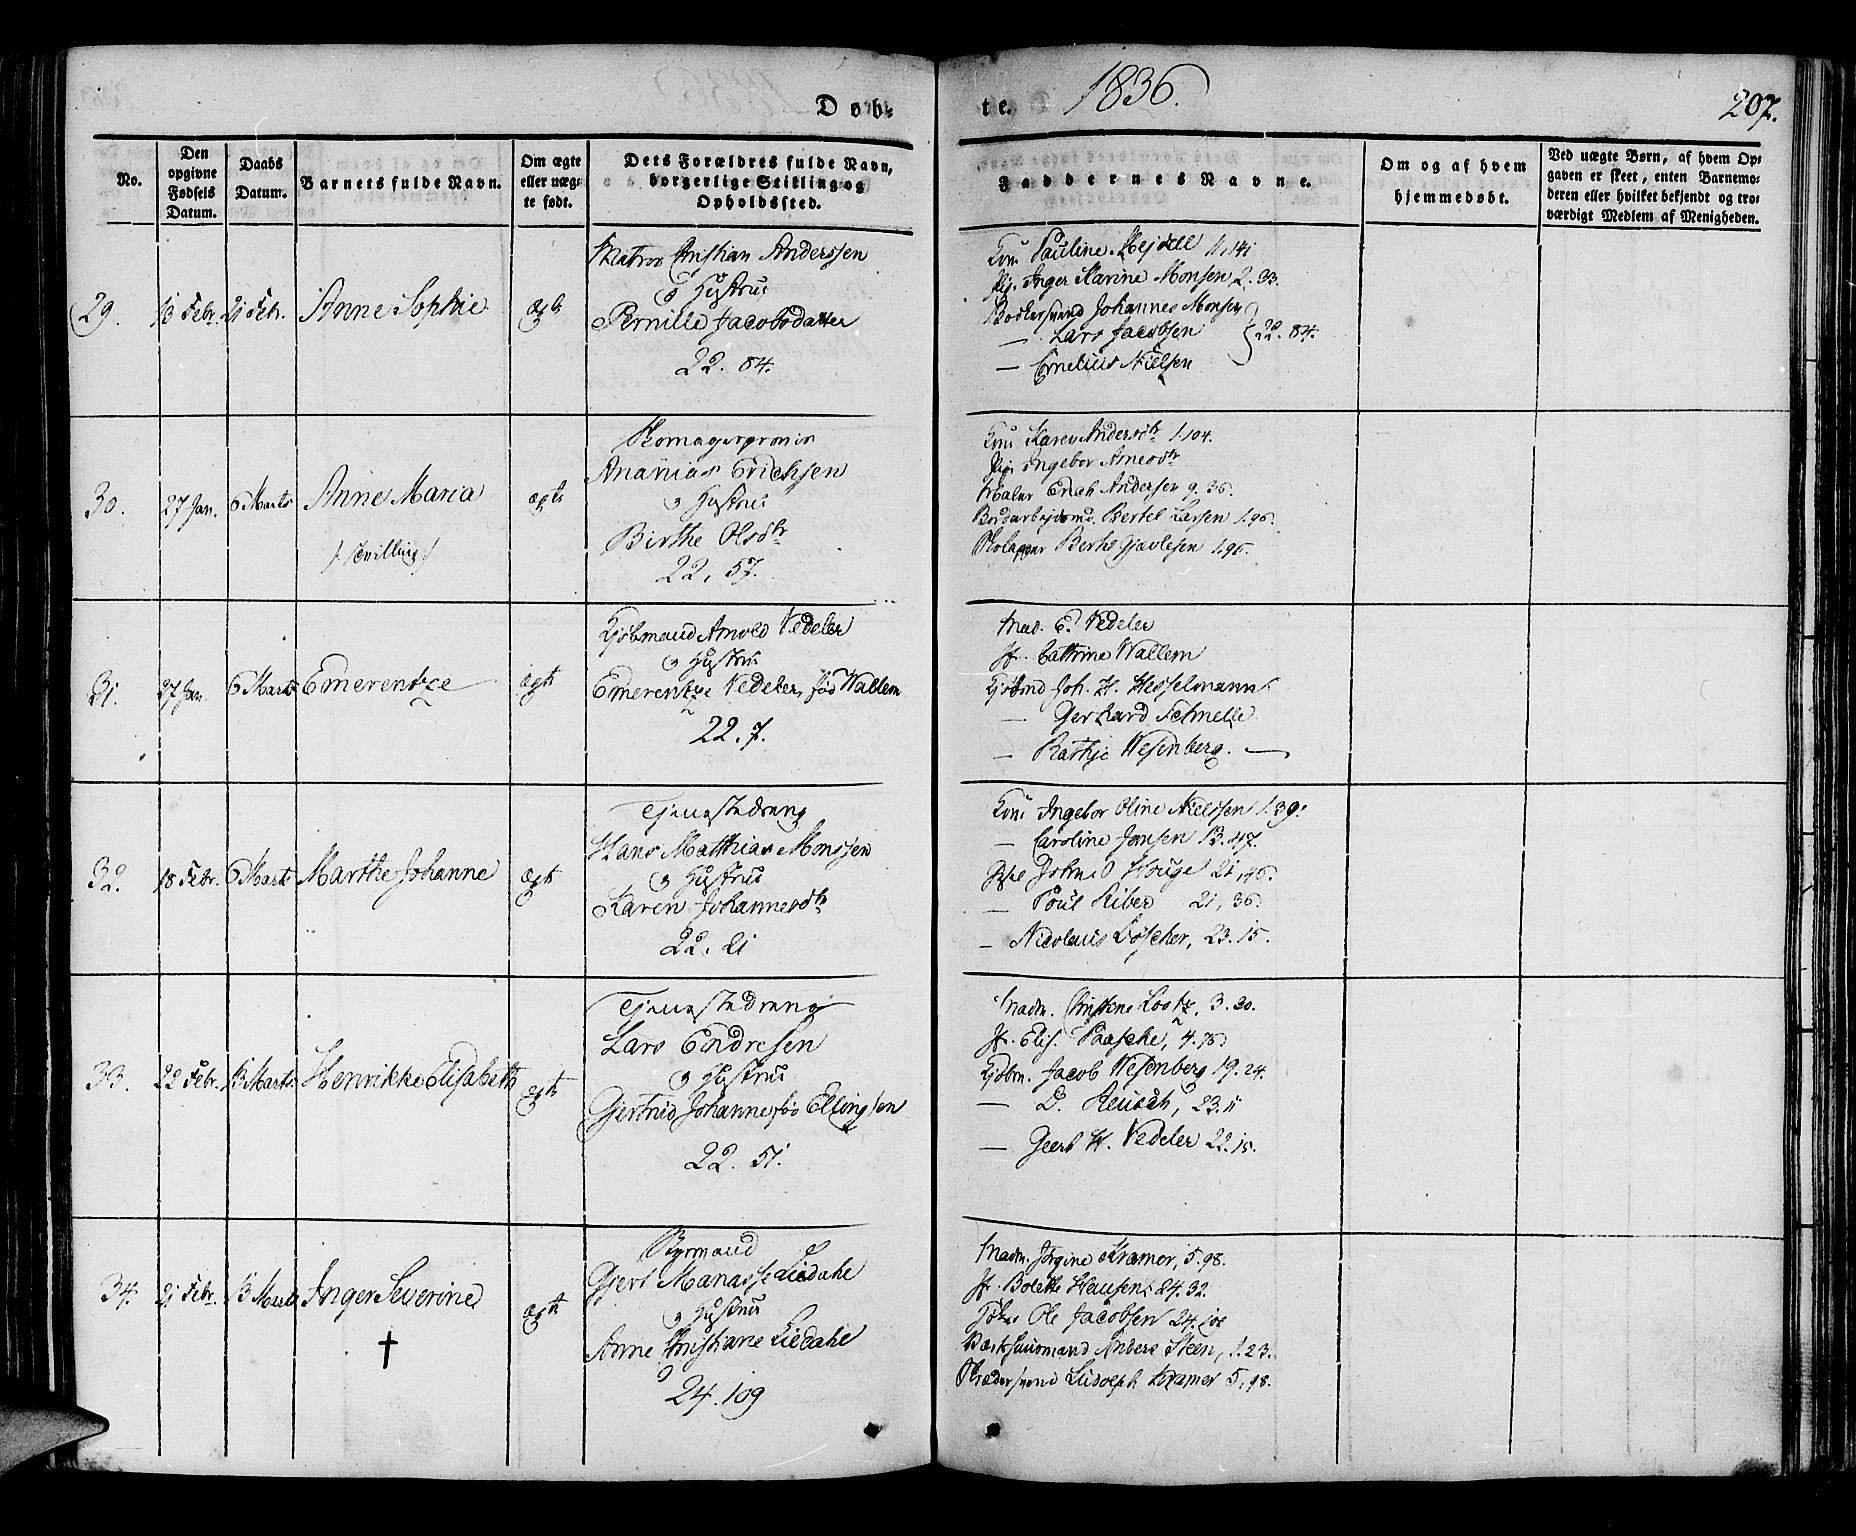 Døb-
te.
1836.
207.
No.
Den opgivne Fødsels Datum.
Daabs Datum.
Barnets fulde Navn.
Om ægte eller uægte født.
Dets Forældres fulde Navn, borgerlige Stilling og Opholdssted.
Faddernes Navne.
Om og af hvem hjemmedøbt.
Ved uægte Børn, af hvem Opgaven er skeet, enten Barnemoderen eller hvilket bekjendt og troværdigt Medlem af Menigheden.
29. 13 Febr. 21 Febr. Anne Sophie ægt
Matros Christian Anderssen
og Hustrue
Pernille Jacobsdatter
22. 84.
Kone Pauline Mejdell 1,141
Pig. Inger Karine Monsen, 2. 33.
Bødkersvend Johannes Monsen
— Lars Jacobsen } 22. 84.
— Cornelius Nielsen
30. 27 Jan. 6 Marts Anne Maria ægte
/: Tvilling :/
Skomagersvend
Ananias Erichsen
og Hustrue
Birthe Olsdtr
22, 57.
Kone Karen Andersdtr 1.104.
Pige Ingebor Arnesdtr
Maler Erich Andersen 9. 36.
Bordarbejdsmd. Bertel Larsen 1.96.
Berthe Gjavlesen 1.96.
31. 27 Jan. 6 Marts Emerentze ægte
Kjøbmand Arnold Vedeler
og Hustrue
Emerentze Vedeler, fød Wallem
22. 7.
Mad. E. Vedeler
Jf. Cathrine Wallem
Kjøbmd Joh. H. Hesselmann
— Gerhard Schnelle
— Rasthje Wesenberg. —
32. 18 Febr. 6 Marts Marthe Johanne ægte
Tjenestedreng
Hans Matthias Monssen
og Hustrue
Karen Johannesdtr
22. 21
Kone Ingebor Oline Nielssen 1.39.
— Caroline Jansen 13. 47.
John O Houge 21, 46.
— Poul Riber 21, 36.
— Nicolaus Løscher, 23. 15.
33. 22 Febr. 13 Marts Henrikke Elisabeth ægte
Tjenestedreng
Lars Endresen
og Hustrue
Gjertrud Johanne fød Ellingsen
22. 51.
Madm. Christine Lootz, 3. 30.
Jf. Elis. Paasche, 4. 76
Kjøbm. Jacob Wesenberg 19. 24.
— D. Reusch, 23. 11
— Geert H. Vedeler 22. 15.
34. 21 Febr. 13 Marts Inger Severine ægte
†
Styrmand
Gjert Manasse Liedahl
og Hustrue
Anne Christiane Liedahl
24. 109
Madm. Jørgine Kramer, 5. 98.
Jf. Bolette Hansen 24. 32.
Ole Jacobsen 24. 108
Anders Steen, 1. 23.
Skrædersvend Ludolph Kramer 5, 98.